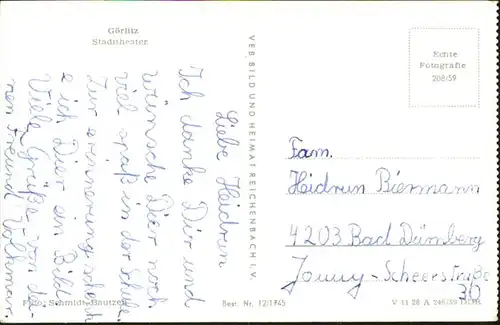 Görlitz
Stadttheater
Liebe Heidrun
Ich danke Dir und
wünsche Dier noch
viel spaß in der schule.
Zur erinnerung schenk
e ich Dier ein Bild
Viele Grüße von dei
nen Freund Volkmar.
Foto: Schmidt, Bautzen
VEB BILD UND HEIMAT REICHENBACH I. V.
Best. Nr. 12/1745
Echte
Fotografie
208/59
Fam.
Heidrun Biermann
4203 Bad Dürrnberg
Jonny-Scheerstraße
30
V 11 28 A 248/59 DDR